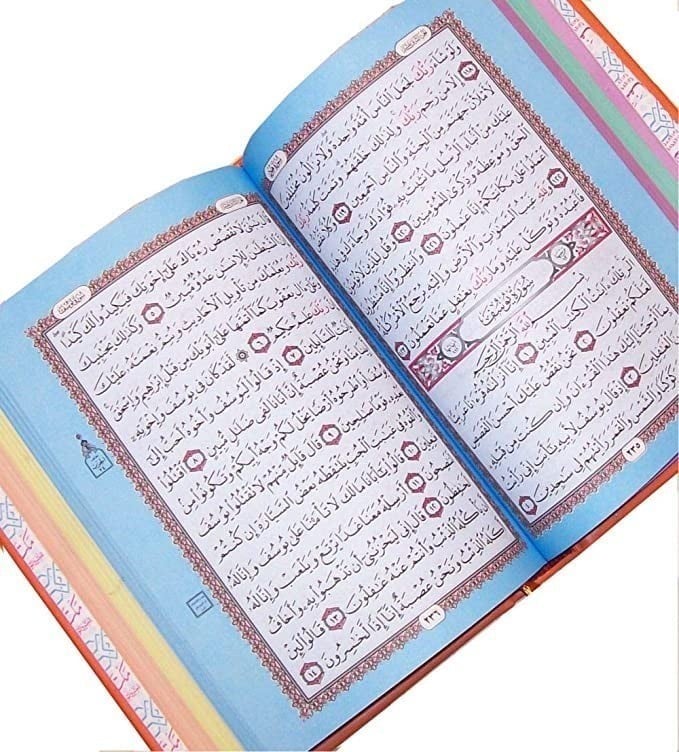 وَلَوْ شَآءَ رَبُّكَ لَجَعَلَ ٱلنَّاسَ أُمَّةً وَٰحِدَةً وَلَا يَزَالُونَ مُخْتَلِفِينَ ١١٨
إِلَّا مَن رَّحِمَ رَبُّكَ وَلِذَٰلِكَ خَلَقَهُمْ وَتَمَّتْ كَلِمَةُ رَبِّكَ
لَأَمْلَأَنَّ جَهَنَّمَ مِنَ ٱلْجِنَّةِ وَٱلنَّاسِ أَجْمَعِينَ ١١٩ وَكُلًّا نَّقُصُّ
عَلَيْكَ مِنْ أَنۢبَآءِ ٱلرُّسُلِ مَا نُثَبِّتُ بِهِۦ فُؤَادَكَ وَجَآءَكَ فِى هَٰذِهِ
ٱلْحَقُّ وَمَوْعِظَةٌ وَذِكْرَىٰ لِلْمُؤْمِنِينَ ١٢٠ وَقُل لِّلَّذِينَ لَا يُؤْمِنُونَ
ٱعْمَلُوا۟ عَلَىٰ مَكَانَتِكُمْ إِنَّا عَٰمِلُونَ ١٢١ وَٱنتَظِرُوٓا۟ إِنَّا مُنتَظِرُونَ ١٢٢
وَلِلَّهِ غَيْبُ ٱلسَّمَٰوَٰتِ وَٱلْأَرْضِ وَإِلَيْهِ يُرْجَعُ ٱلْأَمْرُ كُلُّهُۥ
فَٱعْبُدْهُ وَتَوَكَّلْ عَلَيْهِ وَمَا رَبُّكَ بِغَٰفِلٍ عَمَّا تَعْمَلُونَ ١٢٣
سُورَةُ يُوسُفَ
بِسْمِ ٱللَّهِ ٱلرَّحْمَٰنِ ٱلرَّحِيمِ
الٓر تِلْكَ ءَايَٰتُ ٱلْكِتَٰبِ ٱلْمُبِينِ ١ إِنَّآ أَنزَلْنَٰهُ قُرْءَٰنًا عَرَبِيًّا
لَّعَلَّكُمْ تَعْقِلُونَ ٢ نَحْنُ نَقُصُّ عَلَيْكَ أَحْسَنَ ٱلْقَصَصِ
بِمَآ أَوْحَيْنَآ إِلَيْكَ هَٰذَا ٱلْقُرْءَانَ وَإِن كُنتَ مِن قَبْلِهِۦ لَمِنَ
ٱلْغَٰفِلِينَ ٣ إِذْ قَالَ يُوسُفُ لِأَبِيهِ يَٰٓأَبَتِ إِنِّى رَأَيْتُ أَحَدَ عَشَرَ
كَوْكَبًا وَٱلشَّمْسَ وَٱلْقَمَرَ رَأَيْتُهُمْ لِى سَٰجِدِينَ ٤
٢٣٥
قَالَ يَٰبُنَىَّ لَا تَقْصُصْ رُءْيَاكَ عَلَىٰٓ إِخْوَتِكَ فَيَكِيدُوا۟ لَكَ كَيْدًا
إِنَّ ٱلشَّيْطَٰنَ لِلْإِنسَٰنِ عَدُوٌّ مُّبِينٌ ٥ وَكَذَٰلِكَ يَجْتَبِيكَ
رَبُّكَ وَيُعَلِّمُكَ مِن تَأْوِيلِ ٱلْأَحَادِيثِ وَيُتِمُّ نِعْمَتَهُۥ عَلَيْكَ
وَعَلَىٰٓ ءَالِ يَعْقُوبَ كَمَآ أَتَمَّهَا عَلَىٰٓ أَبَوَيْكَ مِن قَبْلُ إِبْرَٰهِيمَ وَإِسْحَٰقَ
إِنَّ رَبَّكَ عَلِيمٌ حَكِيمٌ ٦ لَّقَدْ كَانَ فِى يُوسُفَ وَإِخْوَتِهِۦٓ
ءَايَٰتٌ لِّلسَّآئِلِينَ ٧ إِذْ قَالُوا۟ لَيُوسُفُ وَأَخُوهُ أَحَبُّ إِلَىٰٓ
أَبِينَا مِنَّا وَنَحْنُ عُصْبَةٌ إِنَّ أَبَانَا لَفِى ضَلَٰلٍ مُّبِينٍ ٨ ٱقْتُلُوا۟
يُوسُفَ أَوِ ٱطْرَحُوهُ أَرْضًا يَخْلُ لَكُمْ وَجْهُ أَبِيكُمْ وَتَكُونُوا۟ مِنۢ
بَعْدِهِۦ قَوْمًا صَٰلِحِينَ ٩ قَالَ قَآئِلٌ مِّنْهُمْ لَا تَقْتُلُوا۟ يُوسُفَ
وَأَلْقُوهُ فِى غَيَٰبَتِ ٱلْجُبِّ يَلْتَقِطْهُ بَعْضُ ٱلسَّيَّارَةِ إِن كُنتُمْ
فَٰعِلِينَ ١٠ قَالُوا۟ يَٰٓأَبَانَا مَا لَكَ لَا تَأْمَ۫نَّا عَلَىٰ يُوسُفَ وَإِنَّا لَهُۥ
لَنَٰصِحُونَ ١١ أَرْسِلْهُ مَعَنَا غَدًا يَرْتَعْ وَيَلْعَبْ وَإِنَّا لَهُۥ
لَحَٰفِظُونَ ١٢ قَالَ إِنِّى لَيَحْزُنُنِىٓ أَن تَذْهَبُوا۟ بِهِۦ وَأَخَافُ
أَن يَأْكُلَهُ ٱلذِّئْبُ وَأَنتُمْ عَنْهُ غَٰفِلُونَ ١٣ قَالُوا۟ لَئِنْ
أَكَلَهُ ٱلذِّئْبُ وَنَحْنُ عُصْبَةٌ إِنَّآ إِذًا لَّخَٰسِرُونَ ١٤
٢٣٦